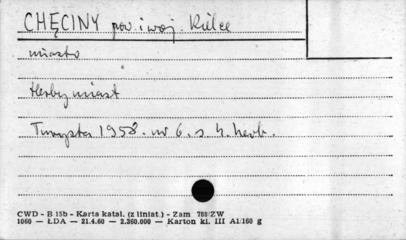 CHĘCINY pow. i woj. Kielce
miasto
Herby miast
Turysta 1958. nr 6. s. 4. herb.
CWD - B 15b - Karta katal. (z liniat.) - Zam 788/ZW
1060 — ŁDA — 21.4.60 — 2.360.000 — Karton kl. III A1/160 g